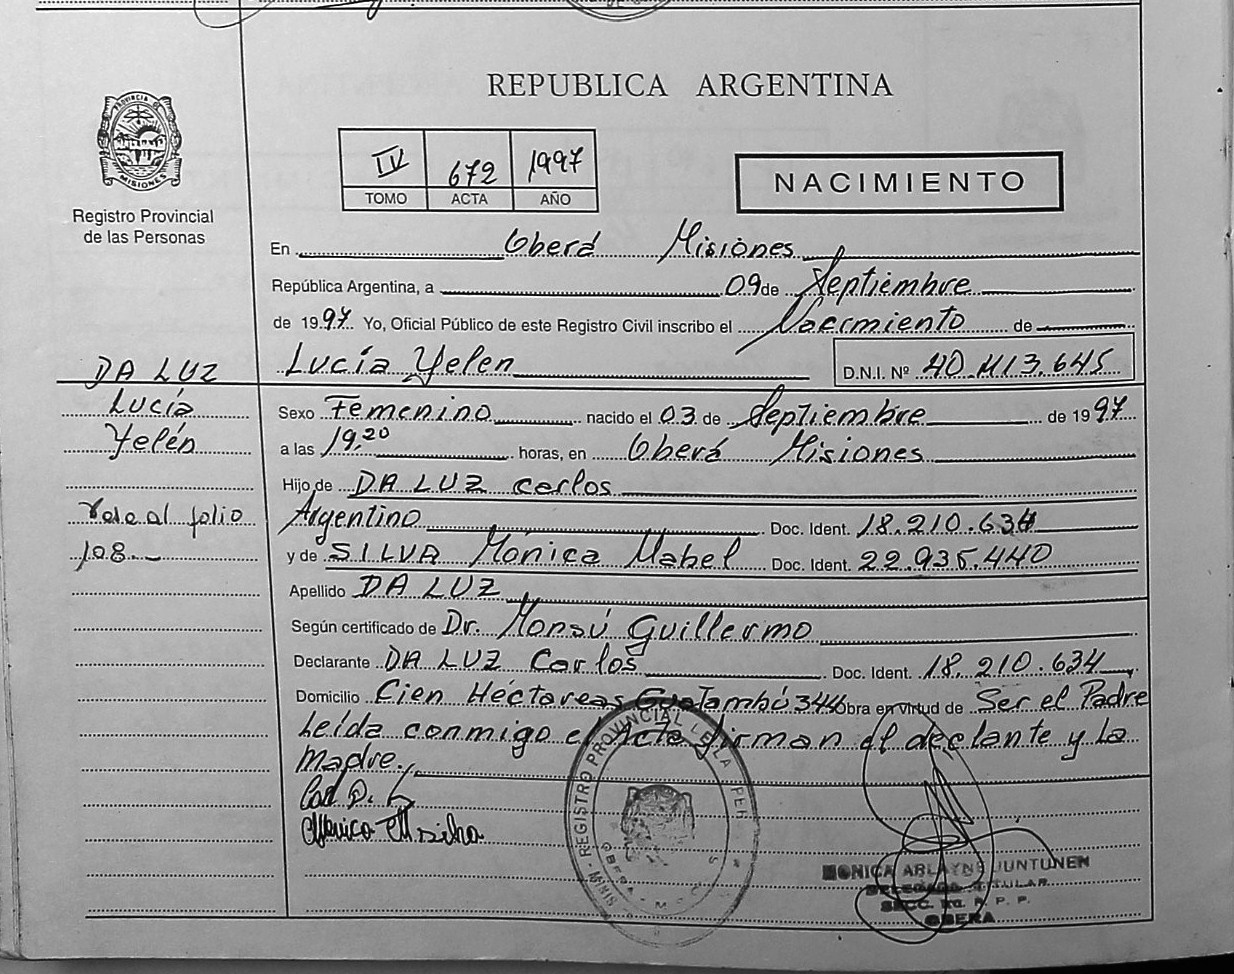 REPUBLICA ARGENTINA
PROVINCIA DE
MISIONES
Registro Provincial
de las Personas
IV 672 1997
TOMO ACTA AÑO
NACIMIENTO
En Oberá Misiones
República Argentina, a 09 de Septiembre
de 1997. Yo, Oficial Público de este Registro Civil inscribo el Nacimiento de
Lucía Yelen D.N.I. Nº 40.413.645
DA LUZ
Lucía
Yelén
Sexo Femenino nacido el 03 de Septiembre de 1997
a las 19,20 horas, en Oberá Misiones
Hijo de DA LUZ Carlos
folio
108
Argentino Doc. Ident. 18.210.634
y de SILVA Mónica Mabel Doc. Ident. 22.935.440
Apellido DA LUZ
Según certificado de Dr. Monsú Guillermo
Declarante DA LUZ Carlos Doc. Ident. 18.210.634
Domicilio Cien Héctareas Guatambú 344 Obra en virtud de Ser el Padre
Leída conmigo el Acta firman el declante y la
Madre.
REGISTRO PROVINCIAL DE LA PER
OBERA
MONICA ARLAYNE JUNTUNEN
DELEGADO TITULAR
SECC. R. P. P.
OBERA